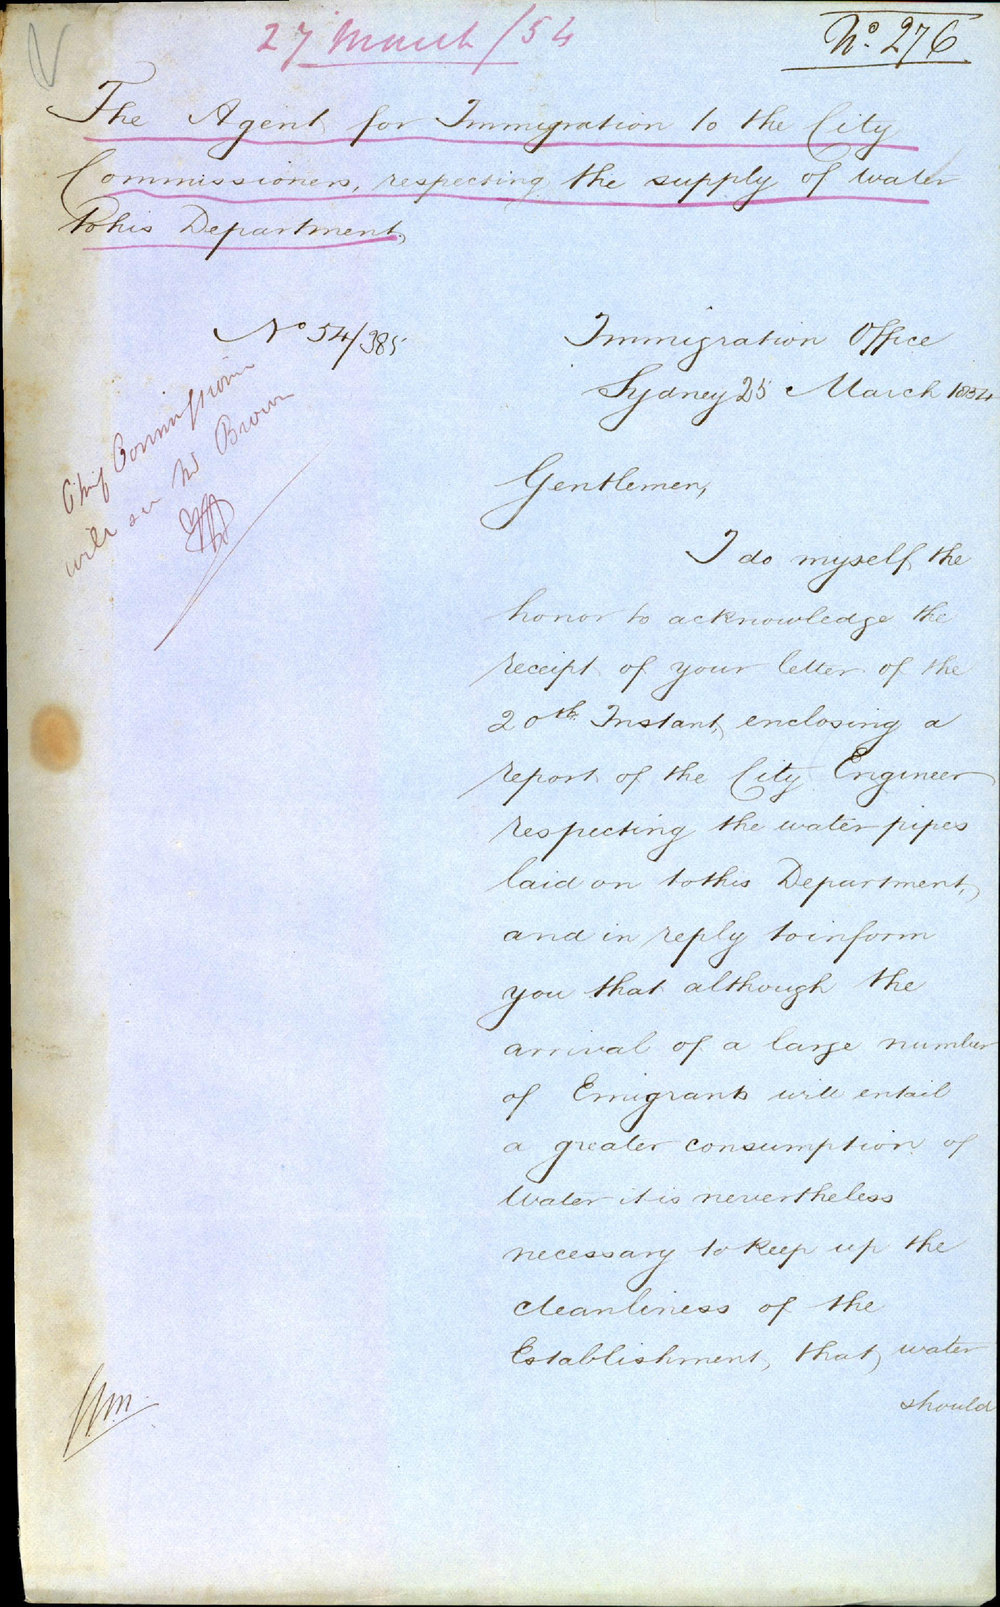 27 March/54
No. 276
The Agent for Immigration to the City
Commissioners, respecting the supply of water
to his Department,
No 54/385
Immigration Office
Sydney 25 March 1854
Chief Commissioner
will see Mr Brown
Gentlemen,
I do myself the
honor to acknowledge the
receipt of your letter of the
20th Instant, enclosing a
report of the City Engineer
respecting the water pipes
laid on to this Department,
and in reply to inform
you that although the
arrival of a large number
of Emigrants will entail
a greater consumption of
water it is nevertheless
necessary to keep up the
cleanliness of the
Establishment, that water
should